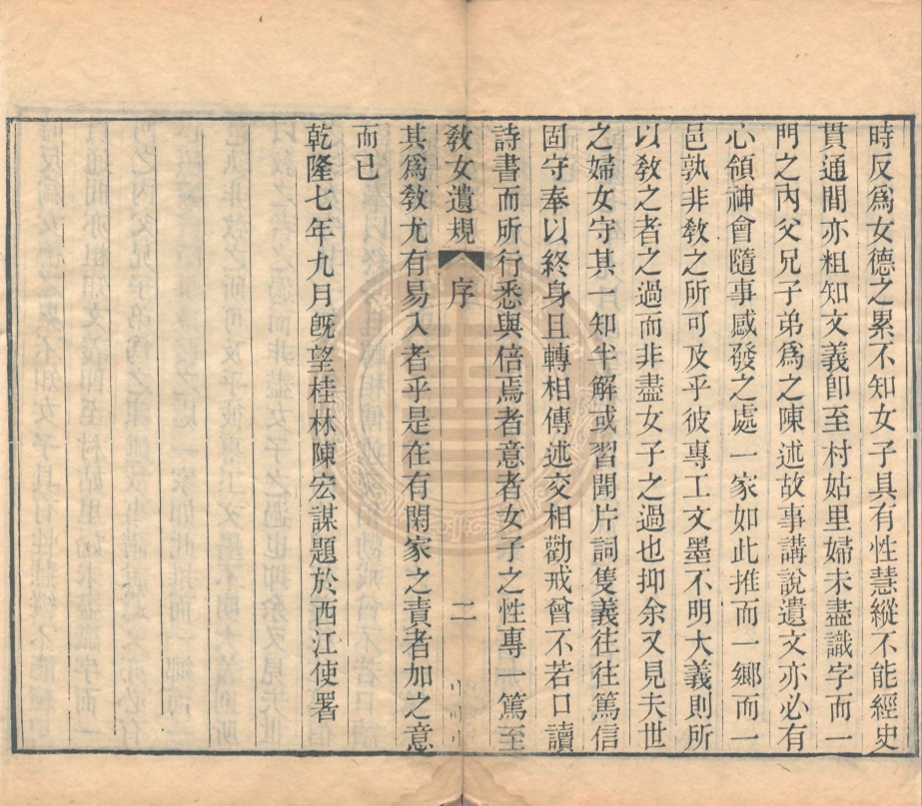 時反爲女德之累不知女子具有性慧縱不能經史
貫通間亦粗知文義卽至村姑里婦未盡識字而一
門之內父兄子弟爲之陳述故事講說遺文亦必有
心領神會隨事感發之處一家如此推而一鄉而一
邑孰非敎之所可及乎彼專工文墨不明大義則所
以敎之者之過而非盡女子之過也抑余又見夫世
之婦女守其一知半解或習聞片詞隻義往往篤信
固守奉以終身且轉相傳述交相勸戒曾不若口讀
詩書而所行悉與倍焉者意者女子之性專一篤至
敎女遺規 序 二
其爲敎尤有易入者乎是在有閑家之責者加之意
而已
乾隆七年九月旣望桂林陳宏謀題於西江使署